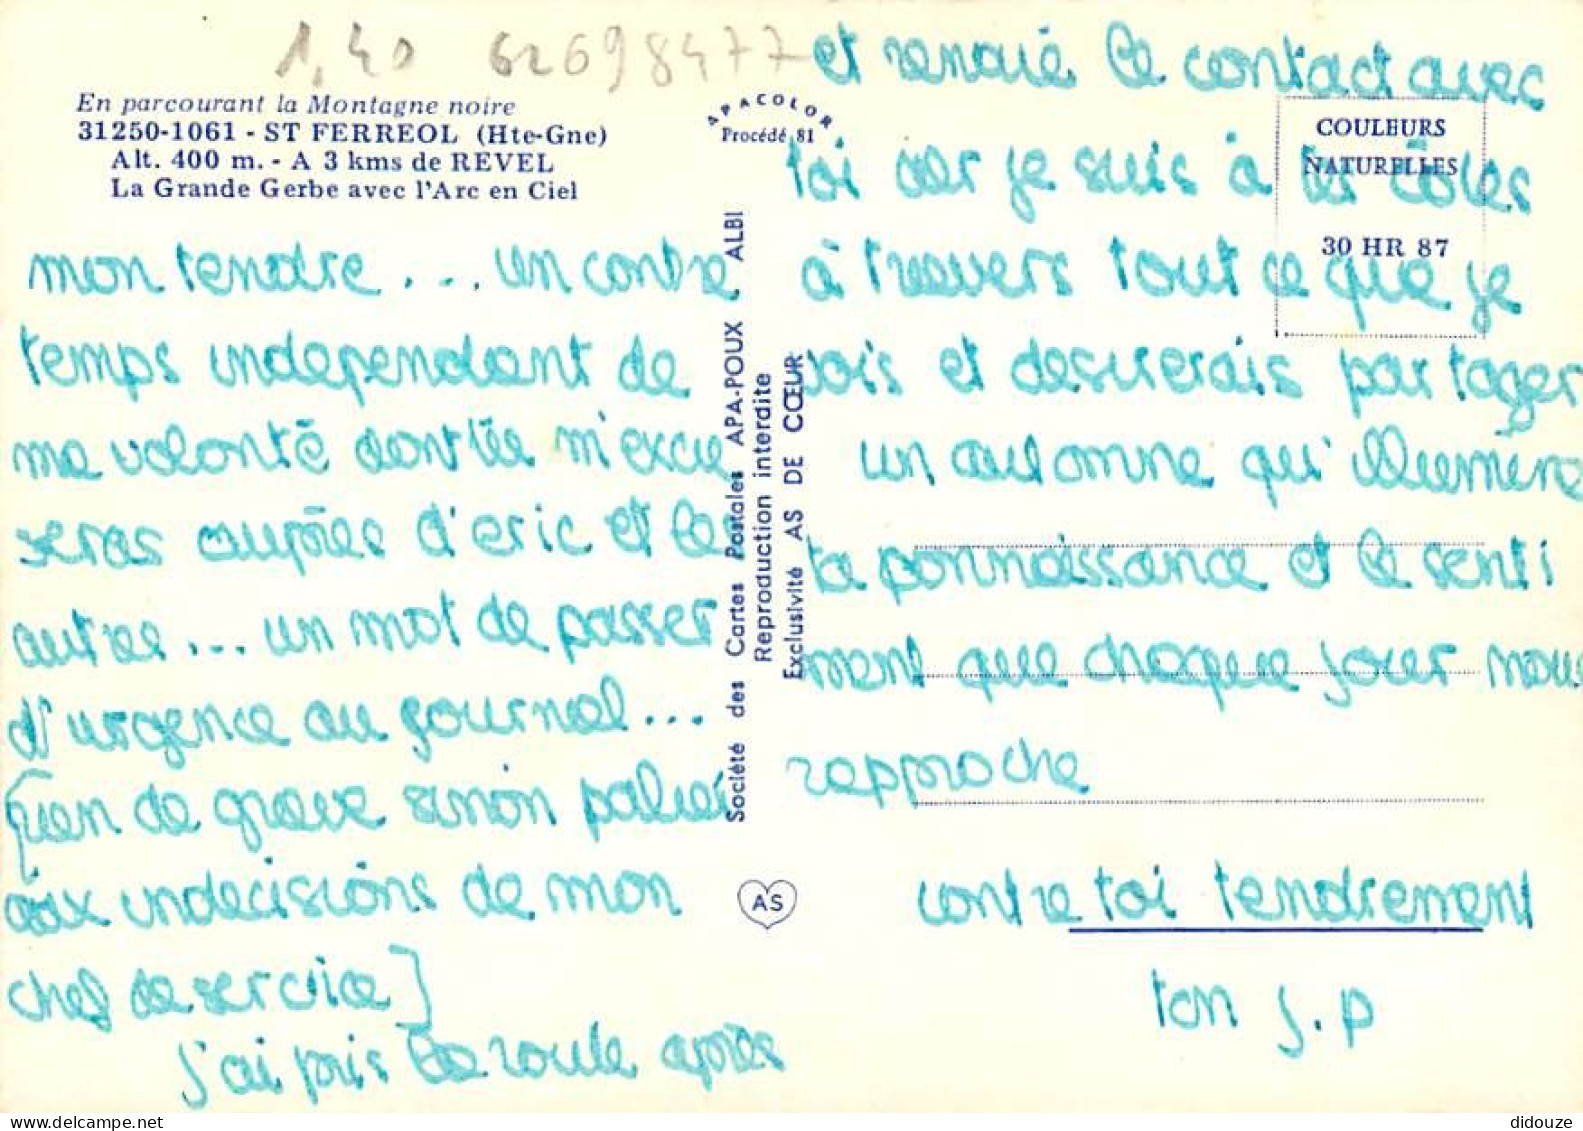 1,40 62698477
En parcourant la Montagne noire
31250-1061 - ST FERREOL (Hte-Gne)
Alt. 400 m. - A 3 kms de REVEL
La Grande Gerbe avec l'Arc en Ciel
APACOLOR
Procédé 81
COULEURS
NATURELLES
30 HR 87
mon tendre... un contre
temps independant de
ma volonté dont tu m'excu
seras auprès d'eric et les
autres... un mot de passer
d'urgence au journal...
[rien de grave sinon palier
aux indecisions de mon
chef de service]
j'ai pris la route après
Société des Cartes Postales APA-POUX ALBI
Reproduction interdite
Exclusivité AS DE CŒUR
AS
et renoué le contact avec
toi car je suis à tes côtés
à travers tout ce que je
vois et desirerais partager
un automne qui illumine
ta connaissance et le senti
ment que chaque jour nous
rapproche
contre toi tendrement
ton j.p
didouze